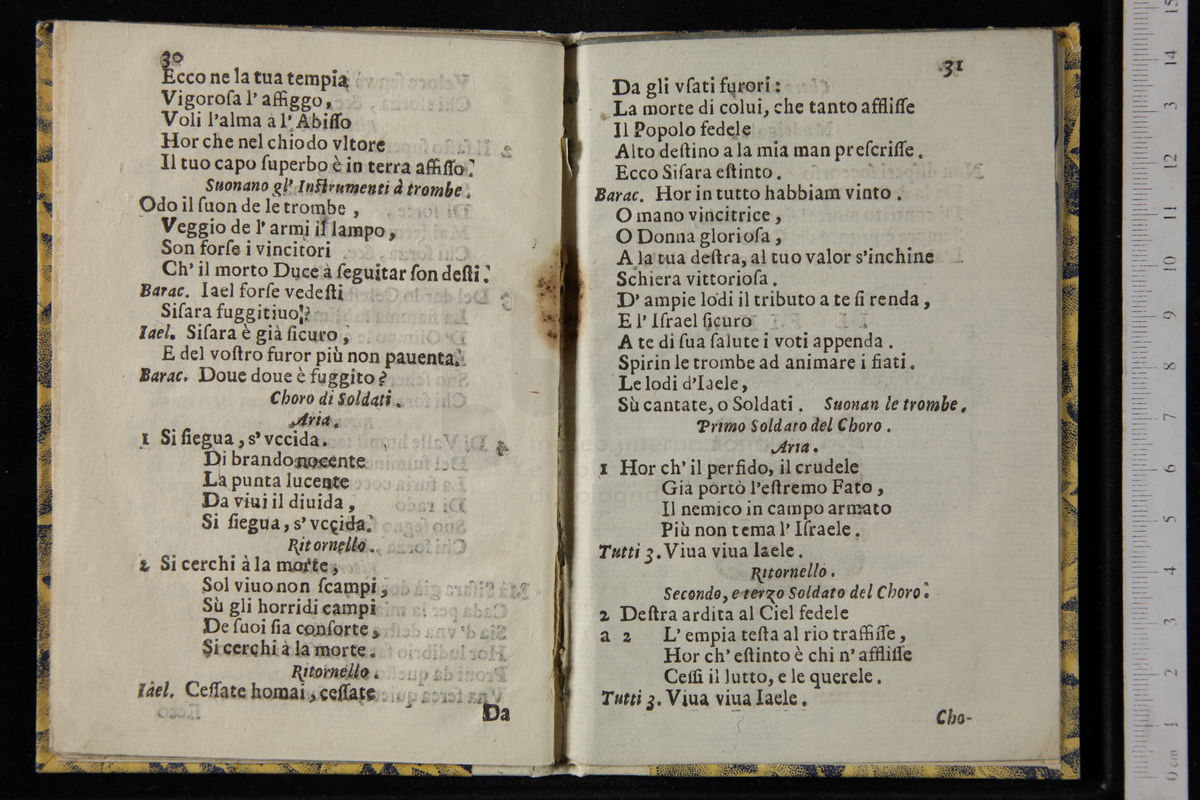 30
Ecco ne la tua tempia
Vigoroſa l' affiggo,
Voli l'alma à l' Abiſſo
Hor che nel chiodo vltore
Il tuo capo ſuperbo è in terra affiſſo.
Suonano gl' Inſtrumenti à trombe.
Odo il ſuon de le trombe ,
Veggio de l' armi il lampo,
Son forſe i vincitori
Ch' il morto Duce à ſeguitar ſon deſti.
Barac. Iael forſe vedeſti
Siſara fuggitiuo?
Iael. Siſara è già ſicuro ,
E del voſtro furor più non pauenta.
Barac. Doue doue è fuggito ?
Choro di Soldati .
Aria.
1 Si ſiegua , s' vccida.
Di brando nocente
La punta lucente
Da viui il diuida ,
Si ſiegua , s' vccida.
Ritornello .
2 Si cerchi à la morte ,
Sol viuo non ſcampi ,
Sù gli horridi campi
De ſuoi ſia conſorte ,
Si cerchi à la morte .
Ritornello .
Iael. Ceſſate homai , ceſſate
Da
31
Da gli vſati furori :
La morte di colui, che tanto affliſſe
Il Popolo fedele
Alto deſtino a la mia man preſcriſſe .
Ecco Siſara eſtinto .
Barac. Hor in tutto habbiam vinto .
O mano vincitrice ,
O Donna glorioſa ,
A la tua deſtra, al tuo valor s'inchine
Schiera vittorioſa .
D' ampie lodi il tributo a te ſi renda ,
E l' Iſrael ſicuro
A te di ſua ſalute i voti appenda .
Spirin le trombe ad animare i fiati .
Le lodi d'Iaele,
Sù cantate, o Soldati . Suonan le trombe .
Primo Soldato del Choro .
Aria .
1 Hor ch' il perfido, il crudele
Già portò l'eſtremo Fato ,
Il nemico in campo armato
Più non tema l' Iſraele .
Tutti 3. Viua viua Iaele .
Ritornello .
Secondo, e terzo Soldato del Choro .
2 Deſtra ardita al Ciel fedele
a 2 L' empia teſta al rio traffiſſe ,
Hor ch' eſtinto è chi n' affliſſe
Ceſſi il lutto, e le querele .
Tutti 3. Viua viua Iaele .
Cho-